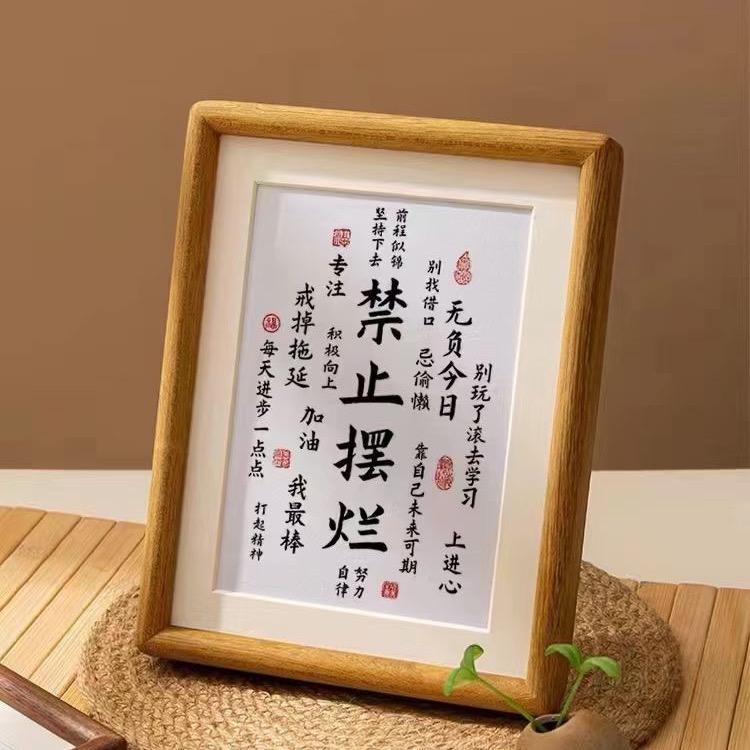 别玩了滚去学习
上进心
无负今日
别找借口
忌偷懒
靠自己未来可期
前程似锦
坚持下去
禁止摆烂
努力
自律
专注
积极向上
戒掉拖延
加油
我最棒
每天进步一点点
打起精神